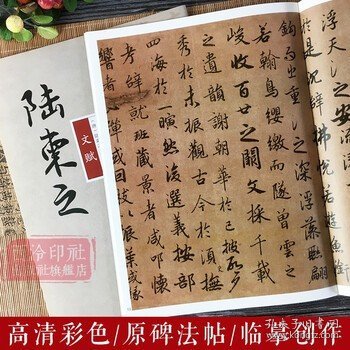 陆柬之
文赋
於是沈辭怫悅若遊魚銜
鉤而出重淵之深浮藻聯翩
若翰鳥纓繳而墜曾雲之
峻收百世之闕文採千載
之遺韻謝朝華於已披啟夕
秀於未振觀古今之須臾撫
四海於一瞬然後選義按部
考辭就班藏景者咸叩懷
響者畢彈或
西泠印社
出版社旗舰店
高清彩色/原碑法帖/临摹创作